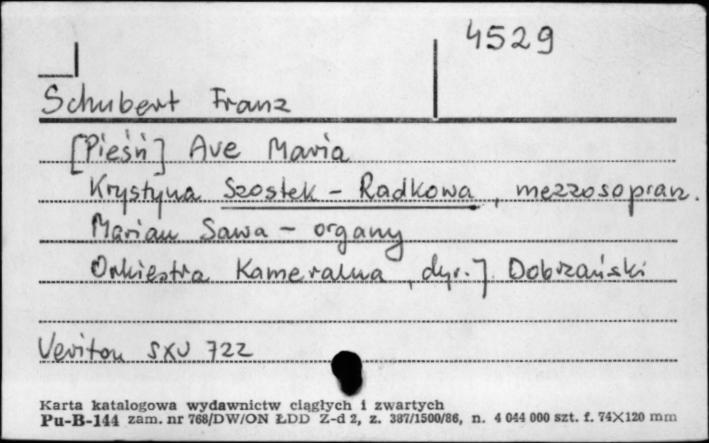 4529
Schubert Franz
[Pieśń] Ave Maria
Krystyna Szostek - Radkowa, mezzosopran.
Marian Sawa - organy
Orkiestra Kameralna, dyr. J. Dobrzański
Veriton SXV 722
Karta katalogowa wydawnictw ciągłych i zwartych
Pu-B-144 zam. nr 768/DW/ON ŁDD Z-d 2, z. 387/1500/86, n. 4 044 000 szt. f. 74X120 mm